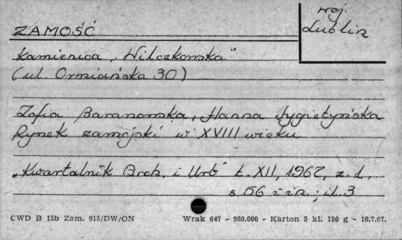 woj.
Lublin
ZAMOŚĆ
Kamienica „Wilczkowska"
(ul. Ormiańska 30)
Zofia Baranowska, Hanna Sygietyńska
Rynek zamojski w XVIII wieku
„Kwartalnik Arch. i Urb" t. XII, 1967, z. 1,
s. 56 i in; il. 3
CWD B 15b Zam. 915/DW/ON Wrak 647 - 980.000 - Karton 5 kl. 180 g - 10.7.67.